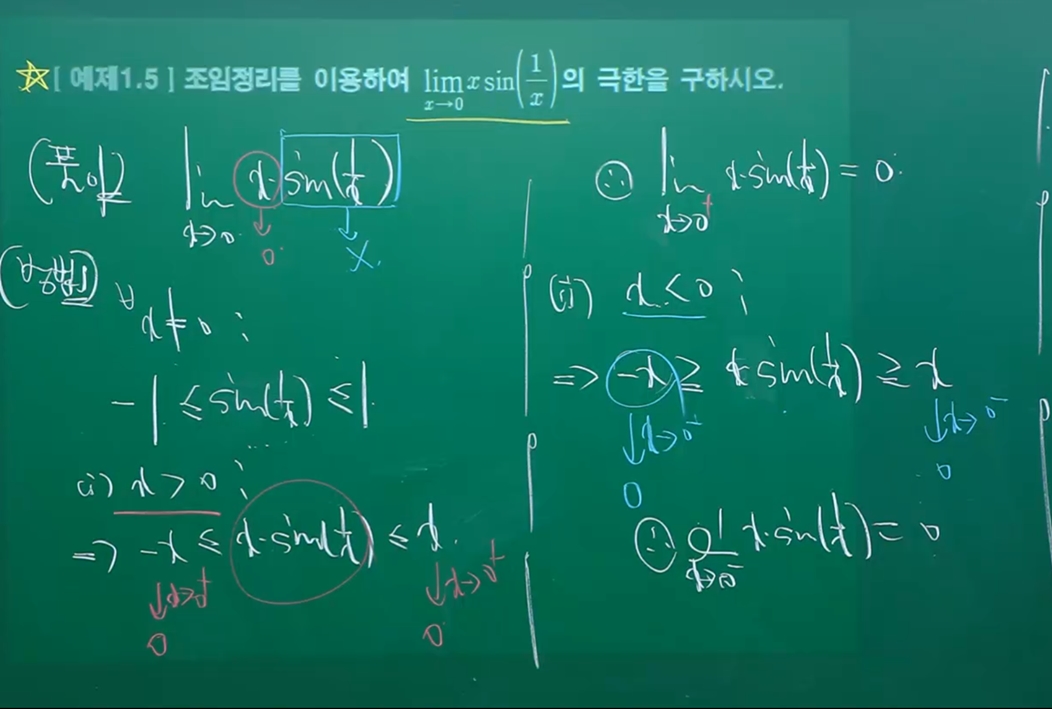 ☆[ 예제1.5 ] 조임정리를 이용하여 lim x→0 x sin(1/x)의 극한을 구하시오.
(풀이) lim x→0 x·sin(1/x)
0 X.
(방법1)
∀x≠0 ;
-1 ≤ sin(1/x) ≤ 1
(i) x > 0 ;
=> -x ≤ x·sin(1/x) ≤ x.
↓x→0⁺ ↓x→0⁺
0 0
∴ lim x→0⁺ x·sin(1/x) = 0.
(ii) x < 0 ;
=> -x ≥ x sin(1/x) ≥ x
↓x→0⁻ ↓x→0⁻
0 0
∴ x→0⁻ x·sin(1/x) = 0